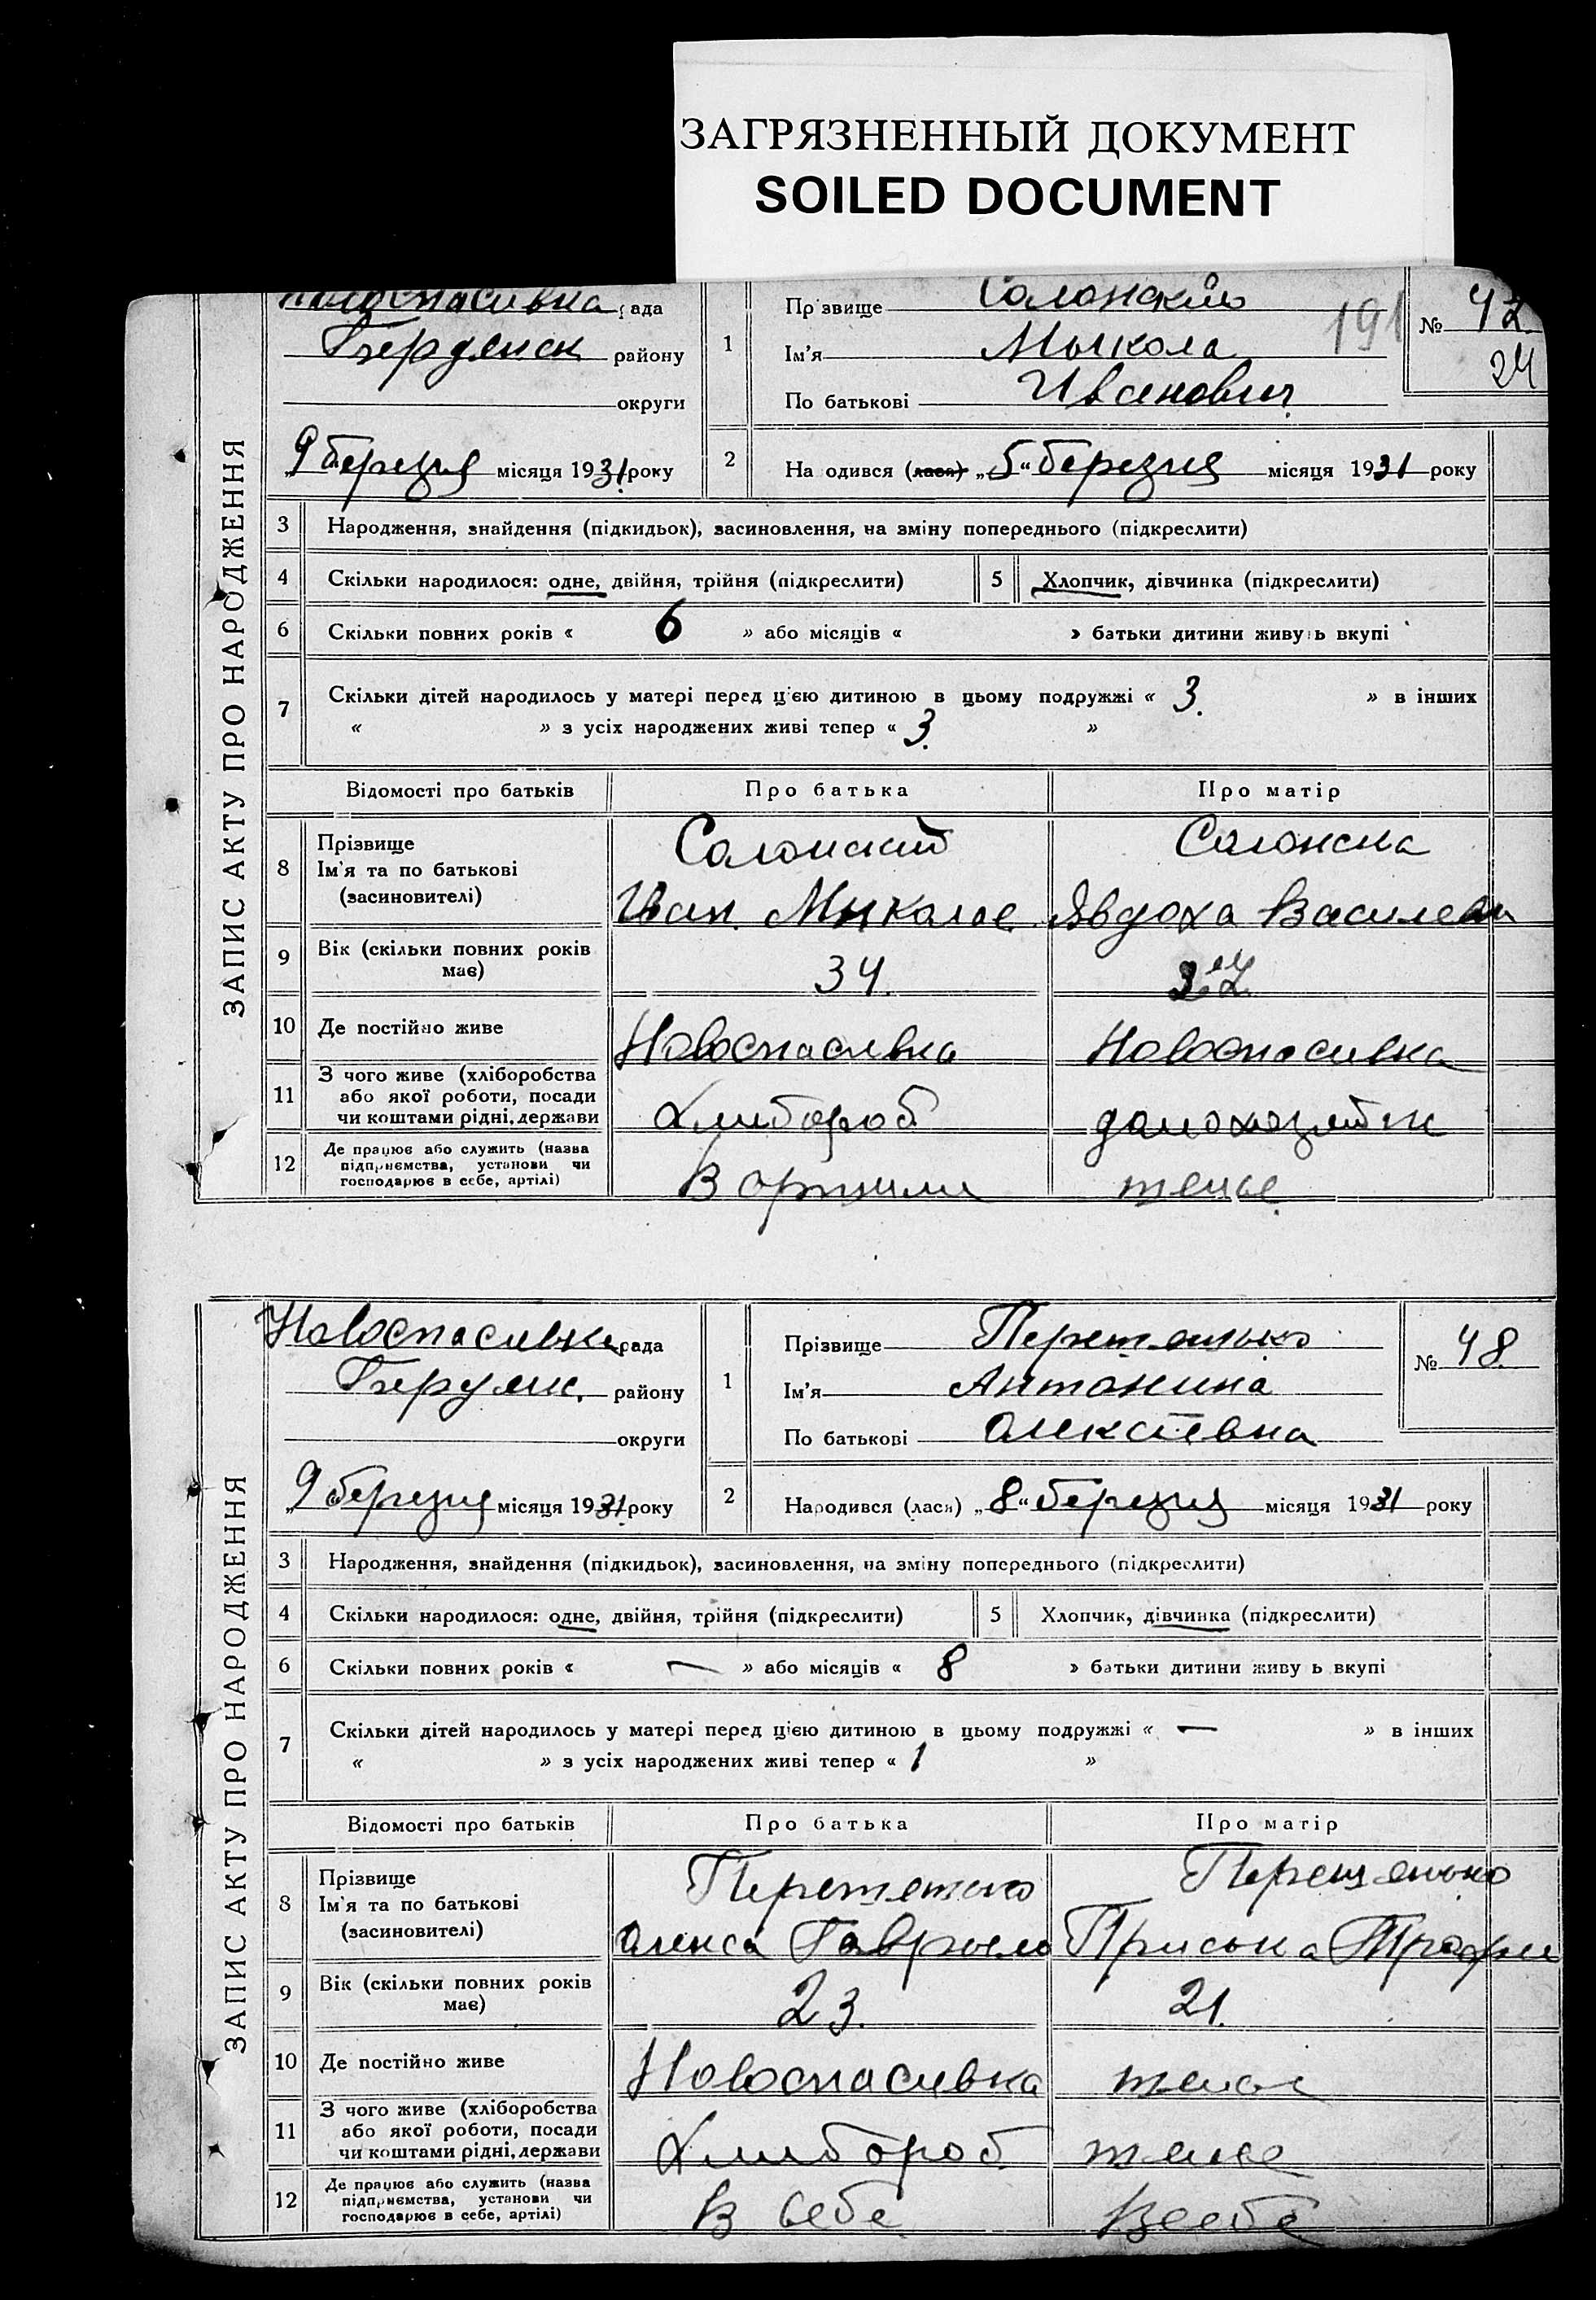 ЗАГРЯЗНЕННЫЙ ДОКУМЕНТ
SOILED DOCUMENT
рада
Прізвище Солонский
191
№ 47
24
Бердянск району
1
Ім'я Мыкола
округи
По батькові Иванович
9 березня місяця 1931 року
2
Народився (лася) „5“ березня місяця 1931 року
ЗАПИС АКТУ ПРО НАРОДЖЕННЯ
3 Народження, знайдення (підкидьок), засиновлення, на зміну попереднього (підкреслити)
4 Скільки народилося: одне, двійня, трійня (підкреслити) 5 Хлопчик, дівчинка (підкреслити)
6 Скільки повних років « 6 » або місяців « » батьки дитини живуть вкупі
7 Скільки дітей народилось у матері перед цією дитиною в цьому подружжі « 3. » в інших
« » з усіх народжених живі тепер « 3. »
Відомості про батьків Про батька Про матір
8 Прізвище Солонский Солонска
Ім'я та по батькові
(засиновителі) Иван Мыколае Явдоха Василевн
9 Вік (скільки повних років
має) 34.
10 Де постійно живе Новоспасивка Новоспасивка
11 З чого живе (хліборобства
або якої роботи, посади
чи коштами рідні, держави Хлибороб
12 Де працює або служить (назва
підприємства, установи чи
господарює в себе, артілі) В артили теще
Новоспасивка рада
Прізвище
№ 48.
району
1
Ім'я Антонина
округи
По батькові Олексіевна
„9 березня місяця 1931 року
2
Народився (лася) „8“ березня місяця 1931 року
ЗАПИС АКТУ ПРО НАРОДЖЕННЯ
3 Народження, знайдення (підкидьок), засиновлення, на зміну попереднього (підкреслити)
4 Скільки народилося: одне, двійня, трійня (підкреслити) 5 Хлопчик, дівчинка (підкреслити)
6 Скільки повних років « — » або місяців « 8 » батьки дитини живуть вкупі
7 Скільки дітей народилось у матері перед цією дитиною в цьому подружжі « — » в інших
« » з усіх народжених живі тепер « 1 »
Відомості про батьків Про батька Про матір
8 Прізвище
Ім'я та по батькові
(засиновителі) Олекса Гаврыло Приська Трофи
9 Вік (скільки повних років
має) 23. 21.
10 Де постійно живе Новоспасивка
11 З чого живе (хліборобства
або якої роботи, посади
чи коштами рідні, держави Хлибороб
12 Де працює або служить (назва
підприємства, установи чи
господарює в себе, артілі) В себе В себе